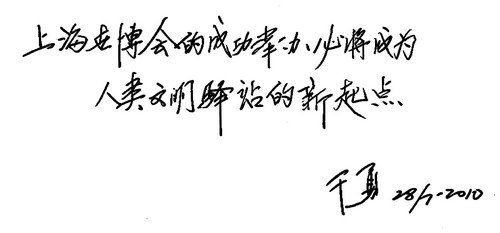 上海世博会的成功举办必将成为
人类文明驿站的新起点
干勇 28/7-2010